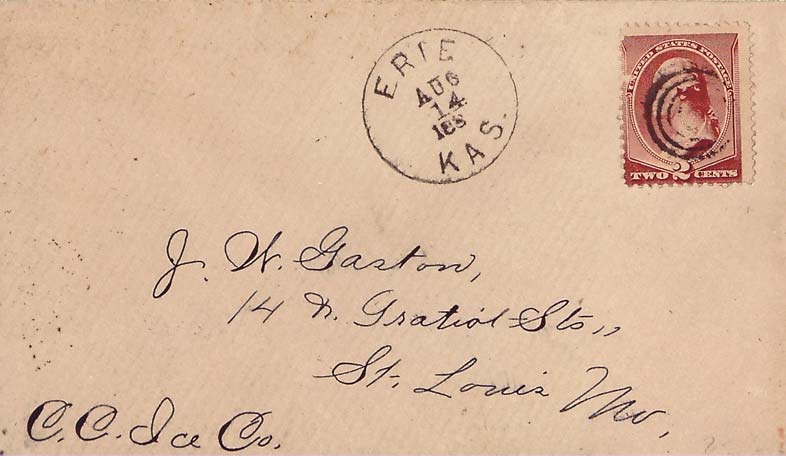 ERIE
AUG
14
188
KAS.
UNITED STATES POSTAGE
TWO 2 CENTS
J. W. Gaston,
14 & Gratiot Sts,,
St. Louis Mo,
C. C. Ice Co.